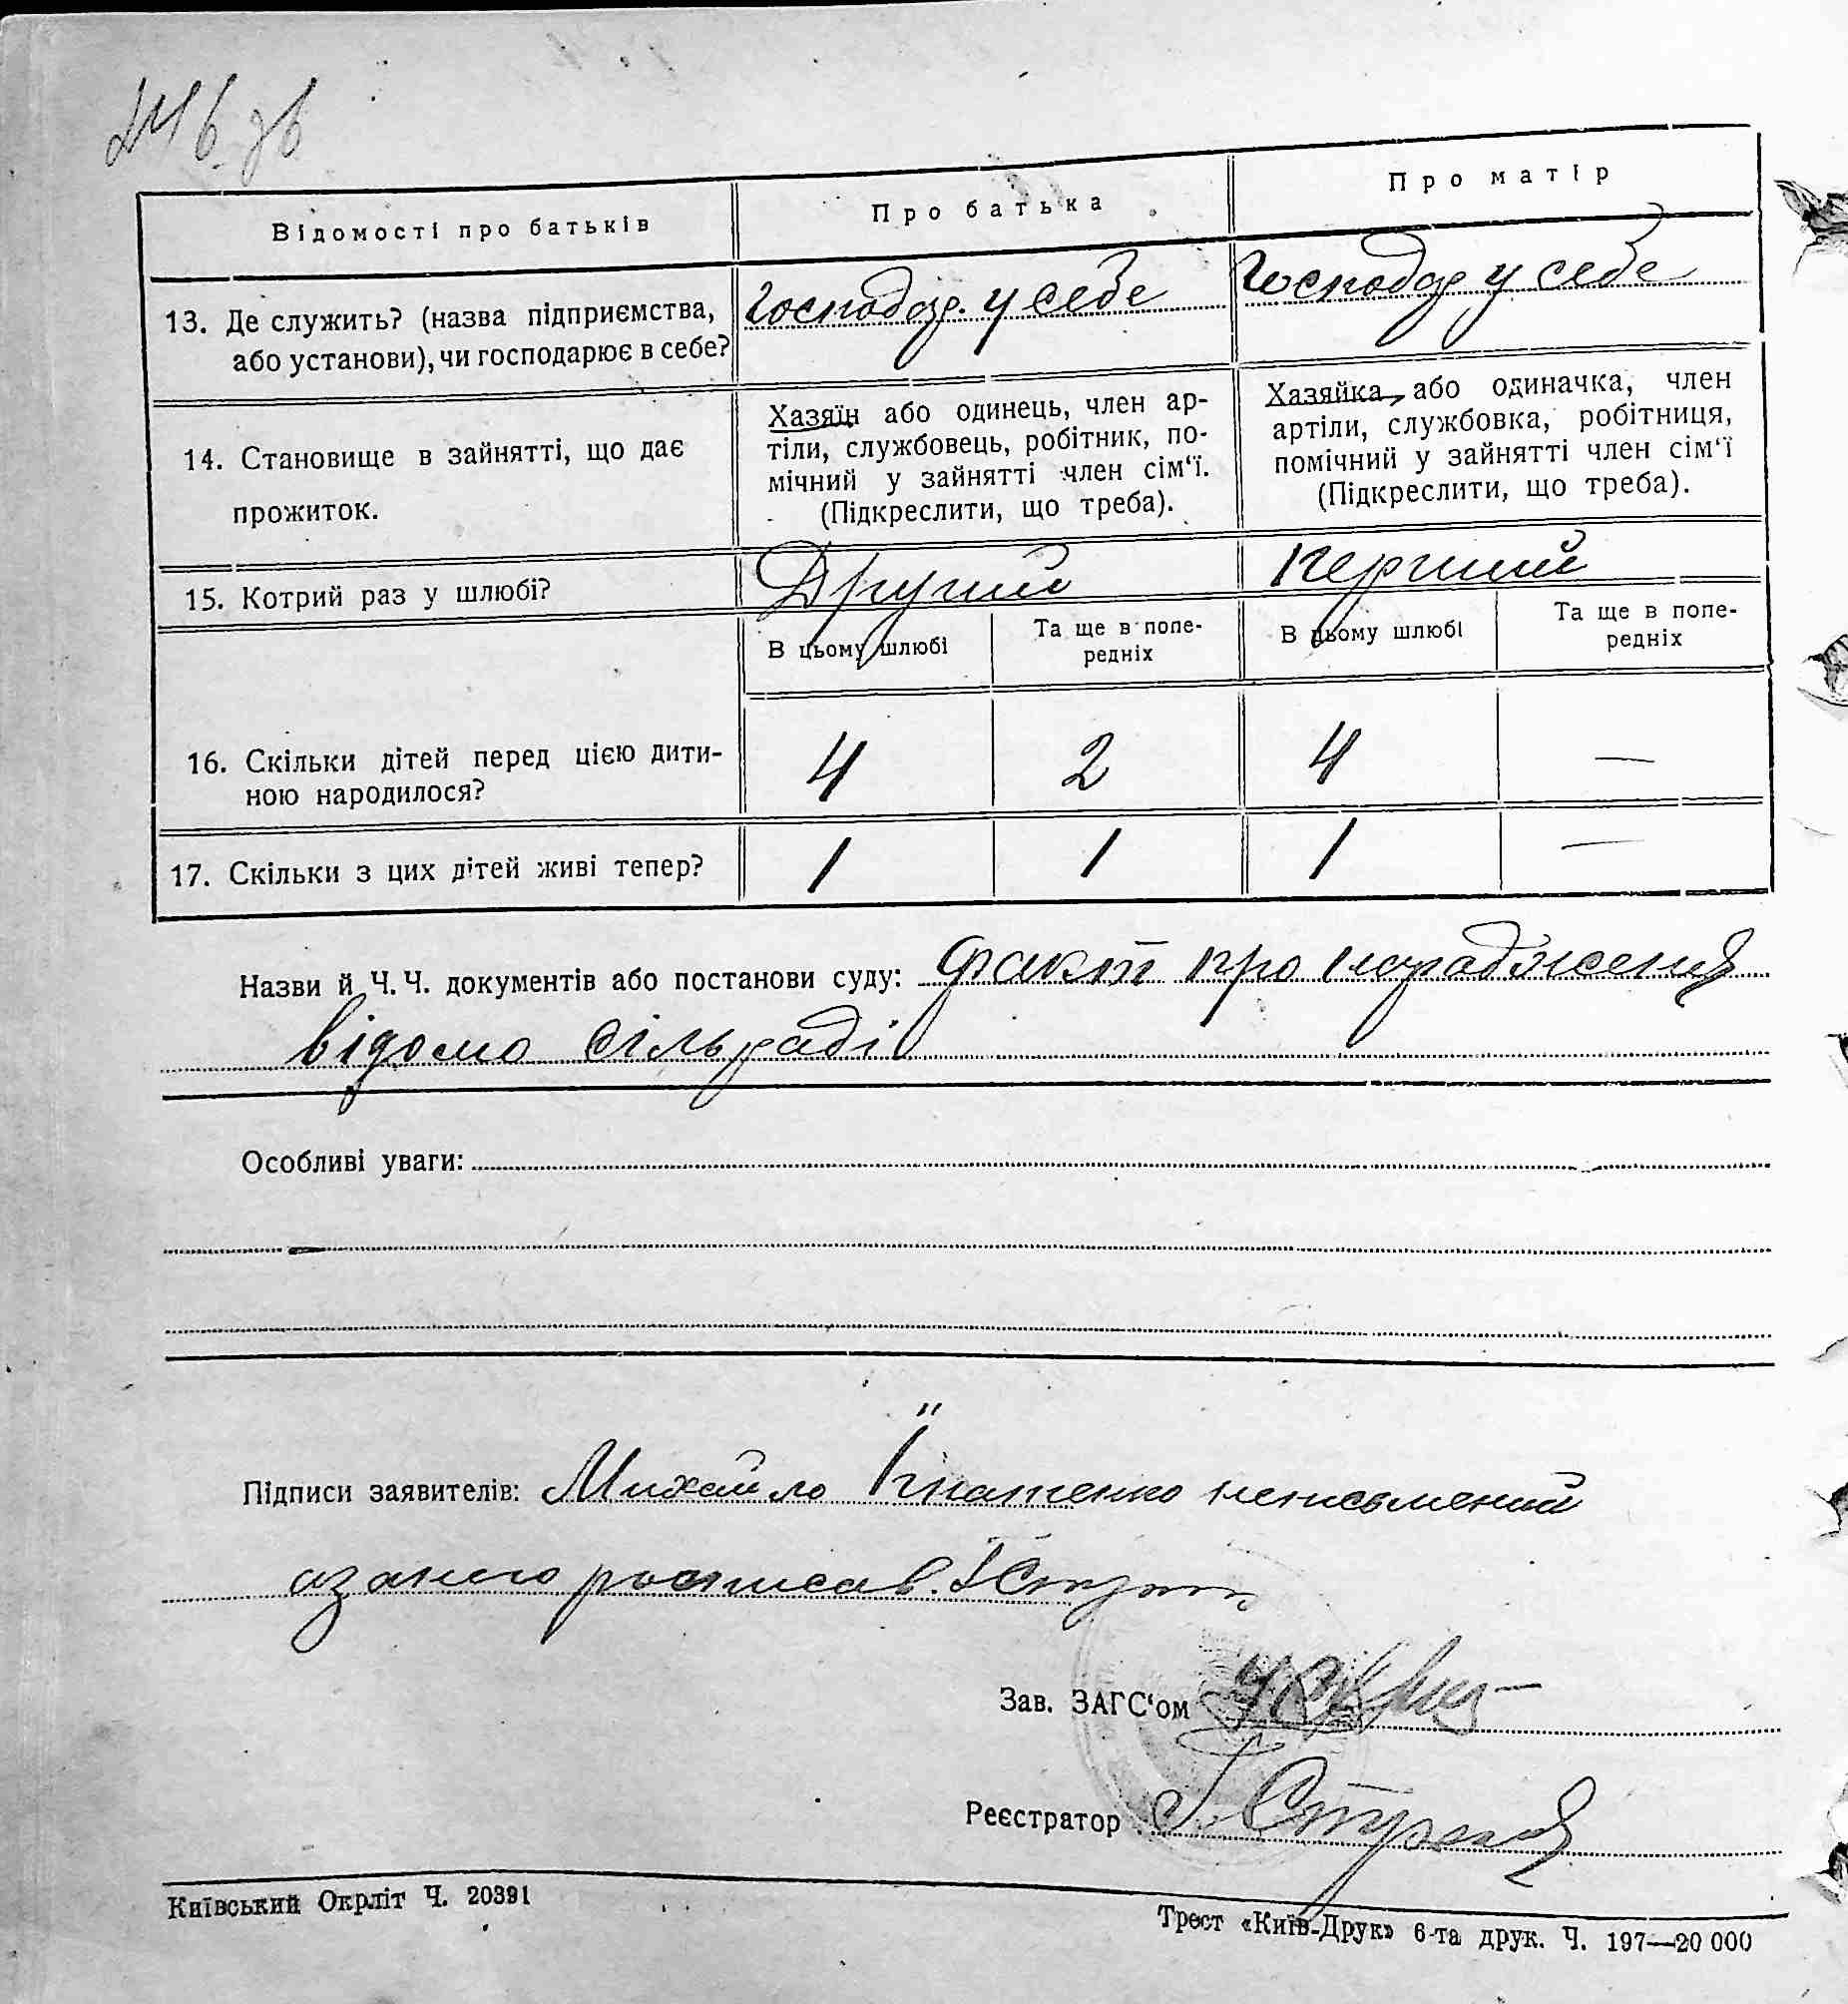 246 зв
Відомості про батьків
Про батька
Про матір
13. Де служить? (назва підприємства,
або установи), чи господарює в себе?
Господар. у себе
Господар у себе
14. Становище в зайнятті, що дає
прожиток.
Хазяїн або одинець, член ар-
тіли, службовець, робітник, по-
мічний у зайнятті член сім‘ї.
(Підкреслити, що треба).
Хазяйка, або одиначка, член
артіли, службовка, робітниця,
помічний у зайнятті член сім‘ї
(Підкреслити, що треба).
15. Котрий раз у шлюбі?
Другий
перший
В цьому шлюбі
Та ще в попе-
редніх
В цьому шлюбі
Та ще в попе-
редніх
16. Скільки дітей перед цією дити-
ною народилося?
4 2 4 —
17. Скільки з цих дітей живі тепер?
1 1 1 —
Назви й Ч. Ч. документів або постанови суду: факт про народження
відомо сільраді
Особливі уваги:
Підписи заявителів: Михайло Їгнатенко неписьмений
а за него росписав.
Зав. ЗАГС‘ом
Реєстратор
Київський Окрліт Ч. 20391
Трест «Київ-Друк» 6-та друк. Ч. 197—20 000